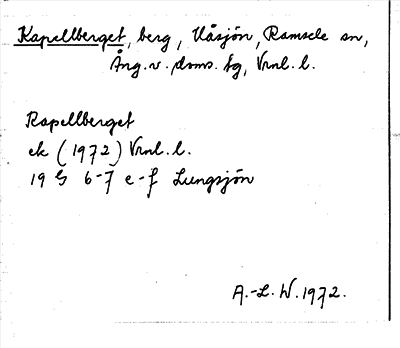 Kapellberget, berg, Uåsjön, Ramsele sn,
Ång. v. doms. tg, Vrnl. l.
Kapellberget
ek (1972) Vrnl. l.
19 G 6-7 e-f Lungsjön
A.-L. W. 1972.